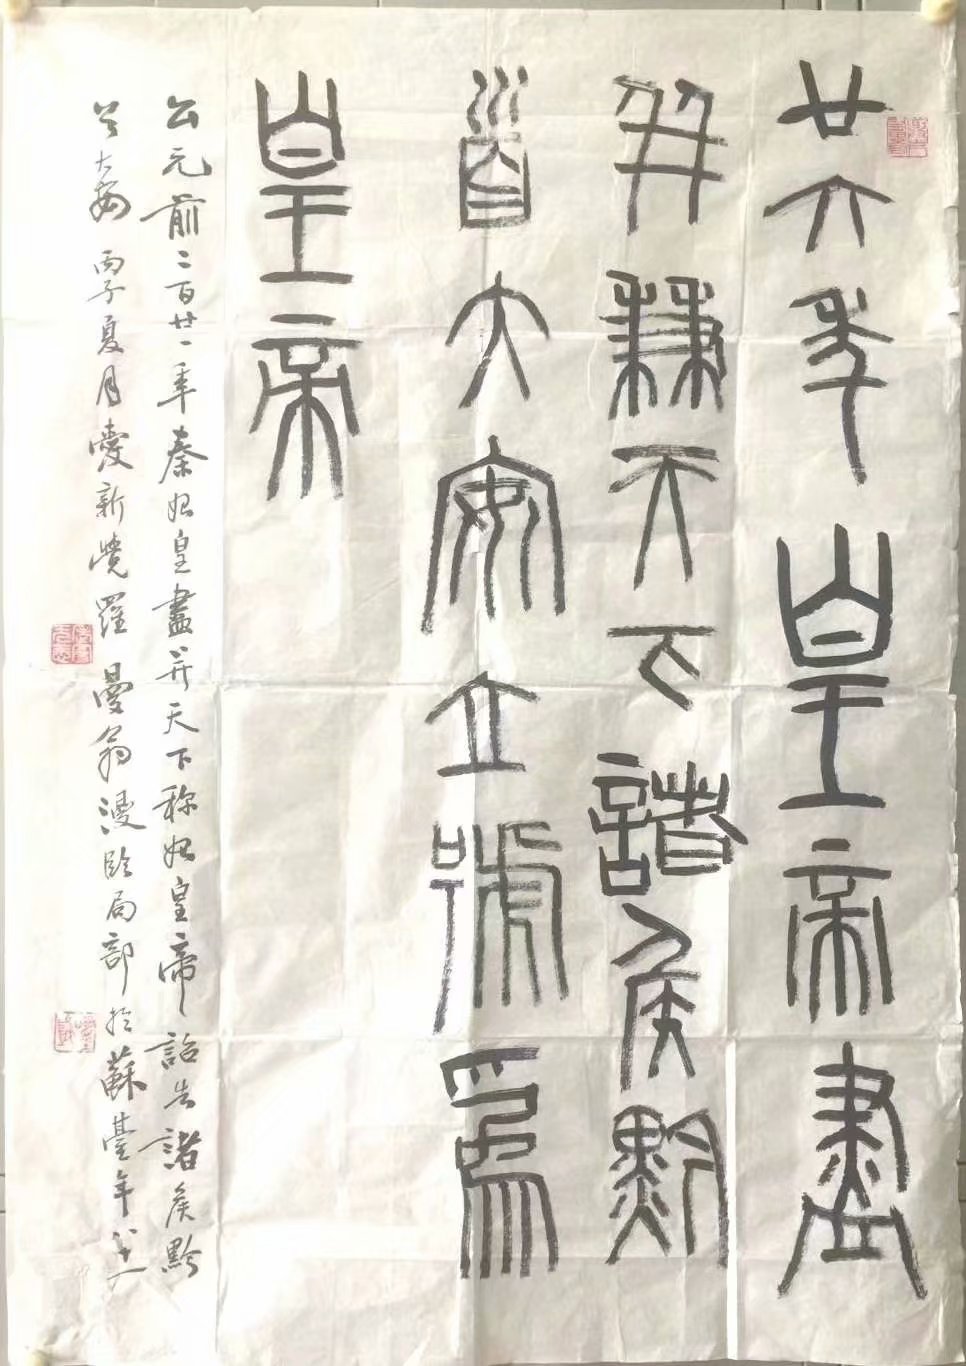 廿六年皇帝盡
并兼天下諸侯黔
首大安立號爲
皇帝
公元前二百廿一年秦始皇盡并天下称始皇帝詔告諸侯黔
首大安 丙子夏月愛新覺羅曼翁漫臨局部於蘇臺年八十一